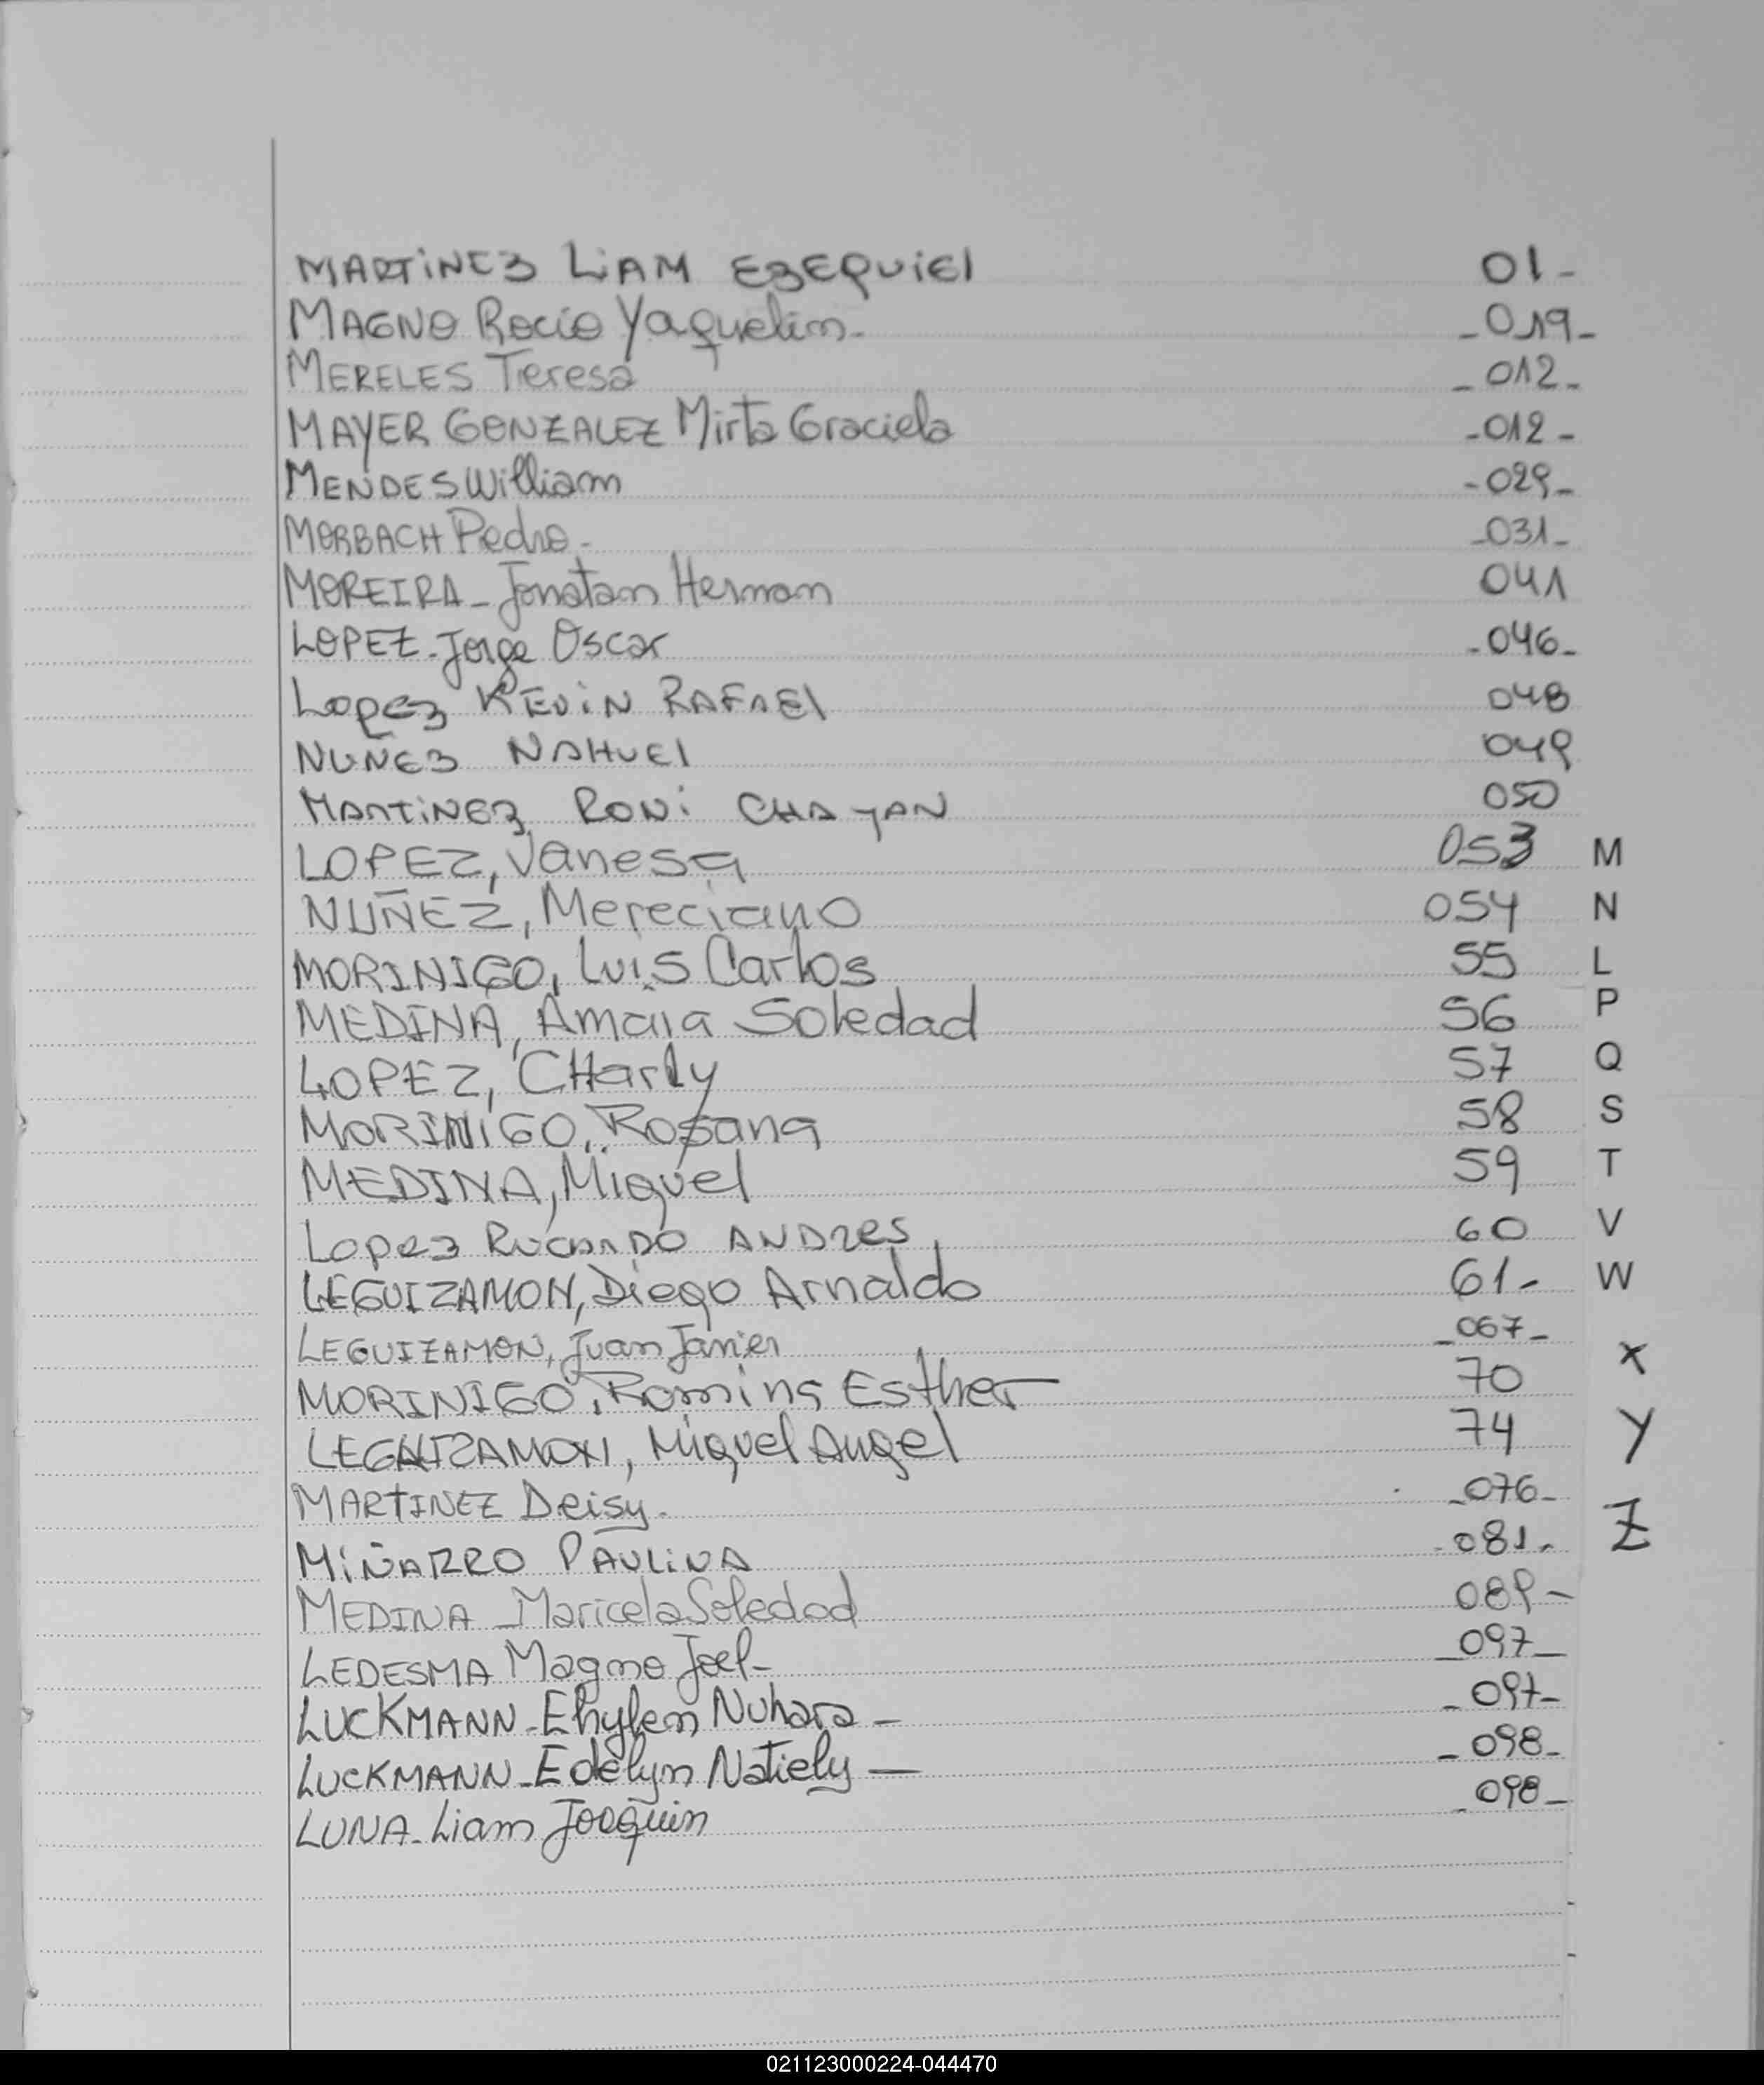 MARTiNEZ LiAM EZEQUiEl 01-
MAGNO Rocío Yaquelin- -019-
MERELES Teresa -012-
MAYER GONZALEZ Mirta Graciela -012-
MENDES William -029-
MORBACH Pedro- -031-
MOREIRA- Jonatan Herman 041
LOPEZ-Jorge Oscar -046-
Lopez KEViN RAFAEl 048
NUÑEZ NAHUEl 049
MARTiNEZ RONi CHAYAN 050
LOPEZ, Vanesa 053 M
NUÑEZ, Mereciano 054 N
MORINIGO, Luis Carlos 55 L
MEDINA, Amaia Soledad 56 P
LOPEZ, CHarly 57 Q
MORINIGO, Rosana 58 S
MEDINA, Miguel 59 T
Lopez RiCARDO ANDRES 60 V
LEGUIZAMON, Diego Arnaldo 61- W
LEGUIZAMON, Juan Javier -067-
MORINIGO, Romina Esther 70 X
LEGUIZAMON, Miguel Angel 74 Y
MARTINEZ Deisy- -076-
MiÑARRO PAULiNA -081- Z
MEDINA -Maricela Soledad 089-
LEDESMA Magno Joel- -097-
LUCKMANN-Ehylen Nuhara - -097-
LUCKMANN-Edelyn Natiely — -098-
LUNA-Liam Joaquin -098-
021123000224-044470